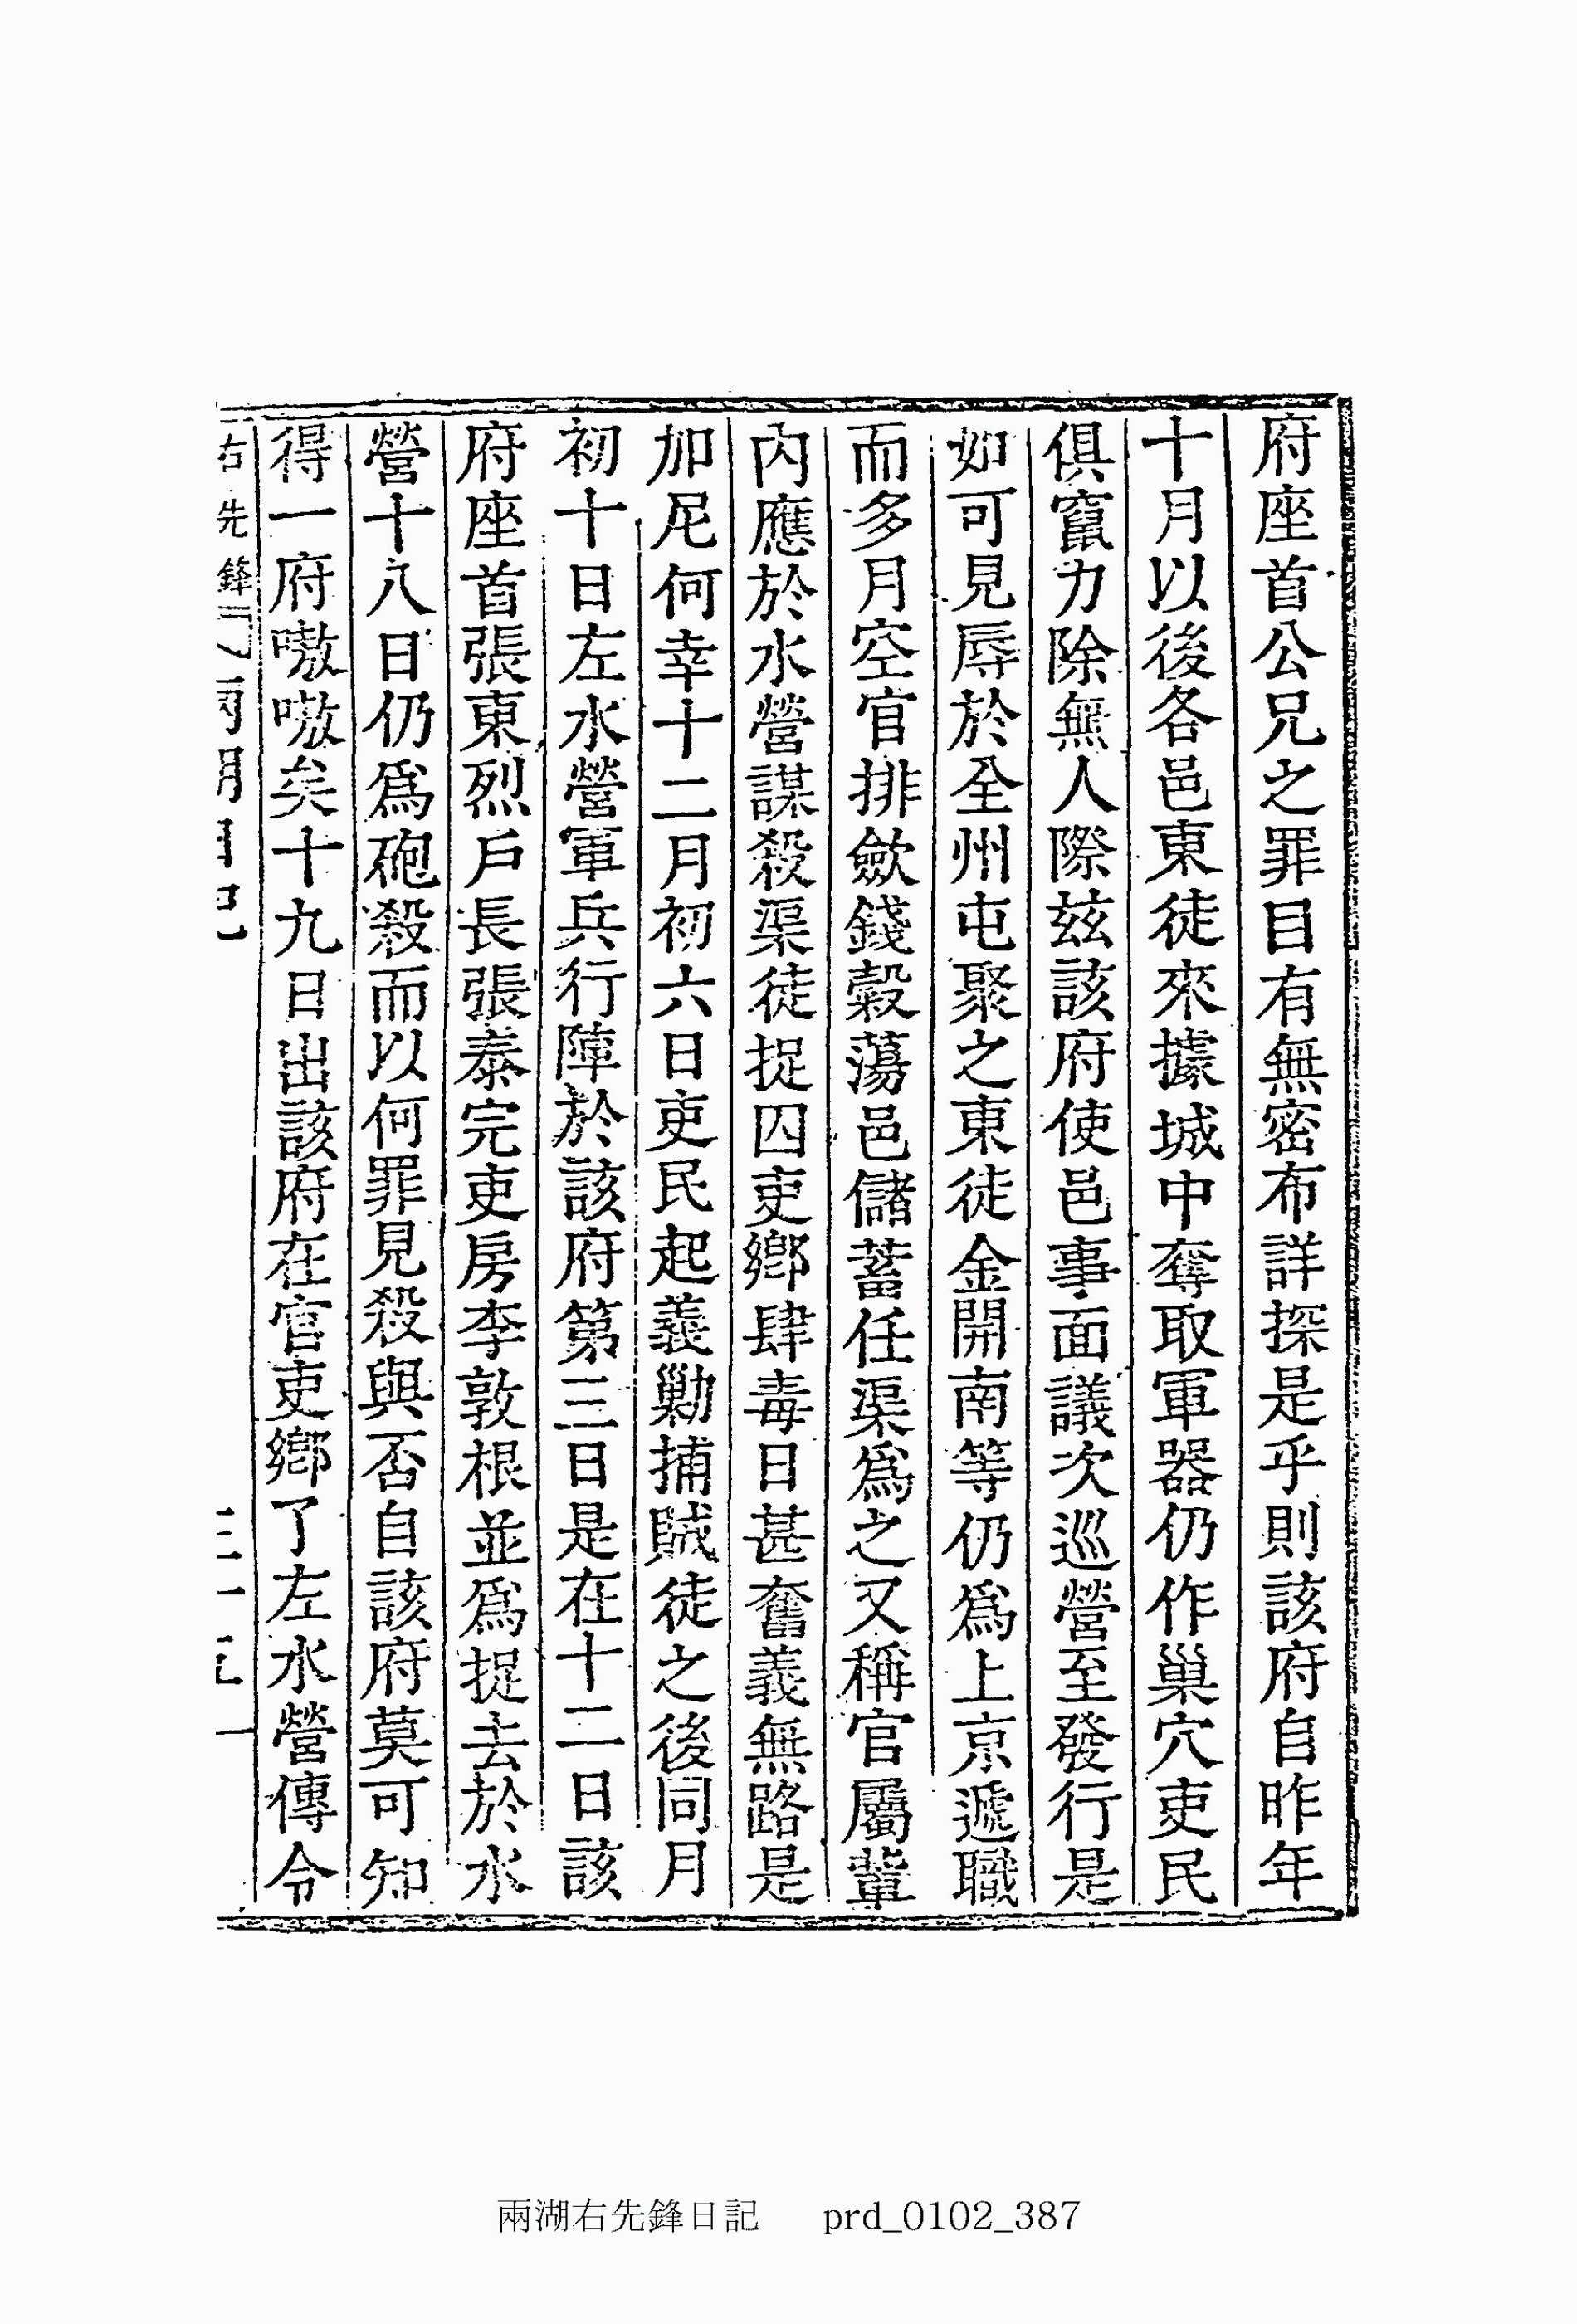 府座首公兄之罪目有無密布詳探是乎則該府自昨年
十月以後各邑東徒來據城中奪取軍器仍作巢穴吏民
俱竄力除無人際玆該府使邑事面議次巡營至發行是
如可見辱於全州屯聚之東徒金開南等仍爲上京遞職
而多月空官排斂錢穀蕩邑儲蓄任渠爲之又稱官屬輩
內應於水營謀殺渠徒捉囚吏鄕肆毒日甚奮義無路是
加尼何幸十二月初六日吏民起義勦捕賊徒之後同月
初十日左水營軍兵行陣於該府第三日是在十二日該
府座首張東烈戶長張泰完吏房李敦根並爲捉去於水
營十八日仍爲砲殺而以何罪見殺與否自該府莫可知
得一府嗷嗷矣十九日出該府在官吏鄕了左水營傳令
右先鋒 兩湖日記
兩湖右先鋒日記 prd_0102_387